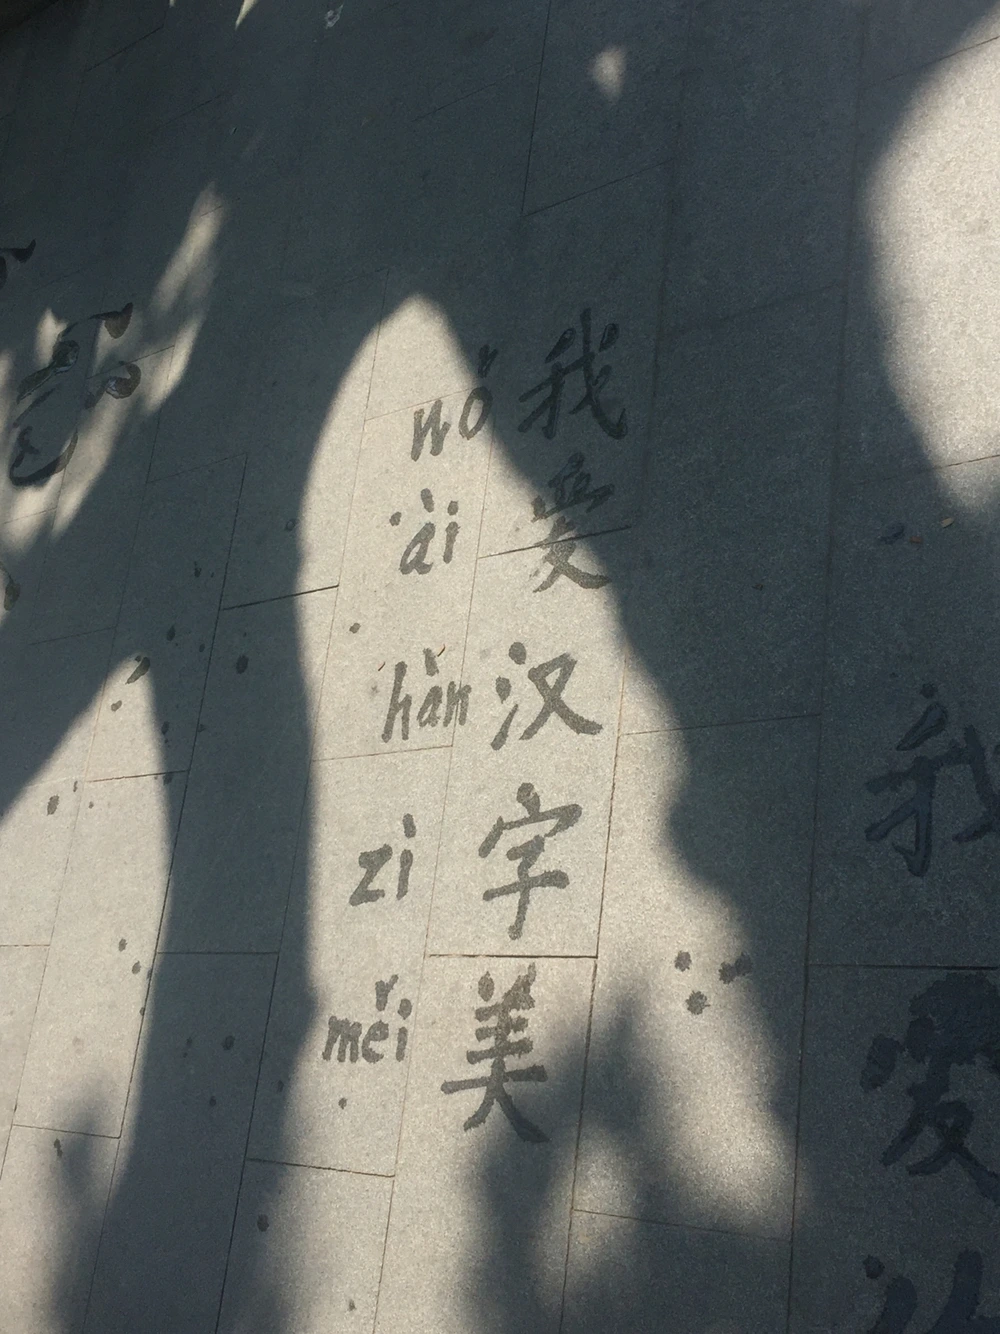 我爱
我爱汉字美
wǒ ài hàn zì měi